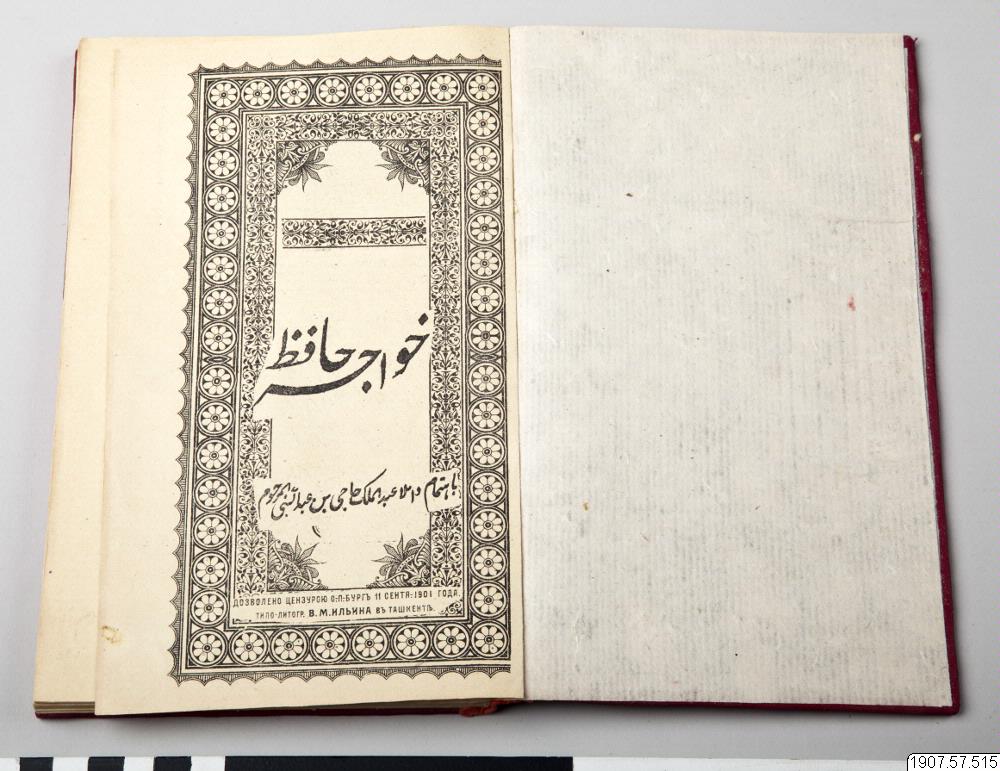 خواجه حافظ
باهتمام داملا عبدالملک حاجی بن عبدالنبی مرحوم
ДОЗВОЛЕНО ЦЕНЗУРОЮ С.П.БУРГЪ 11 СЕНТЯ: 1901 ГОДА.
ТИПО-ЛИТОГР. В.М.ИЛЬИНА ВЪ ТАШКЕНТѢ.
1907.57.515